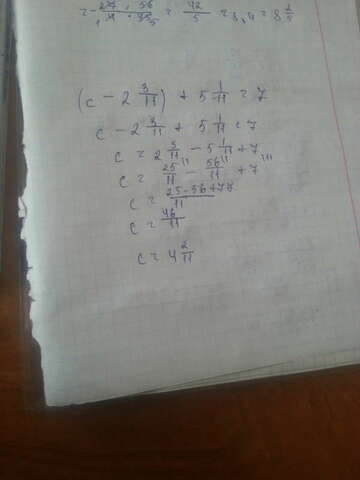 = 42/5 = 8,4 = 8 2/5
(c - 2 3/11) + 5 1/11 = 7
c - 2 3/11 + 5 1/11 = 7
c = 2 3/11 - 5 1/11 + 7
c = 25/11 - 56/11 + 7
c = 25-56+77/11
c = 46/11
c = 4 2/11